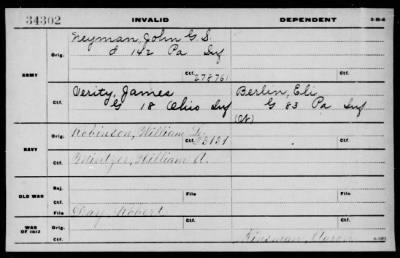 34302 INVALID DEPENDENT 3-B-6
ARMY
Orig. Neyman, John G S.
142 Pa Inf
Ctf. 278761
Ctf. Verity, James Berlin, Eli
G 18 Ohio Inf G 83 Pa Inf
NAVY
Orig. Robinson, William
Ctf. William A.
OLD WAR
Rej. File
Ctf. File
WAR OF 1812
Orig. Day, Robert
Ctf. Kinsman, Aaron